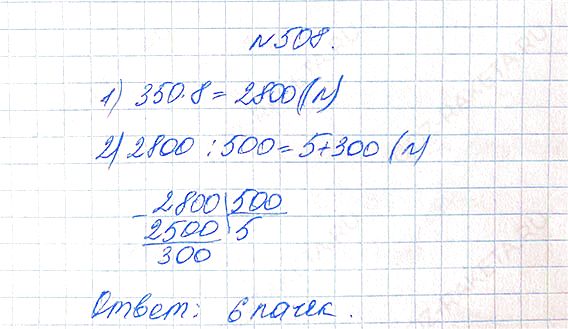 №508.
1) 350·8=2800(л)
2) 2800:500=5+300(л)
-2800|500
2500 5
300
Ответ: 6 пачек.